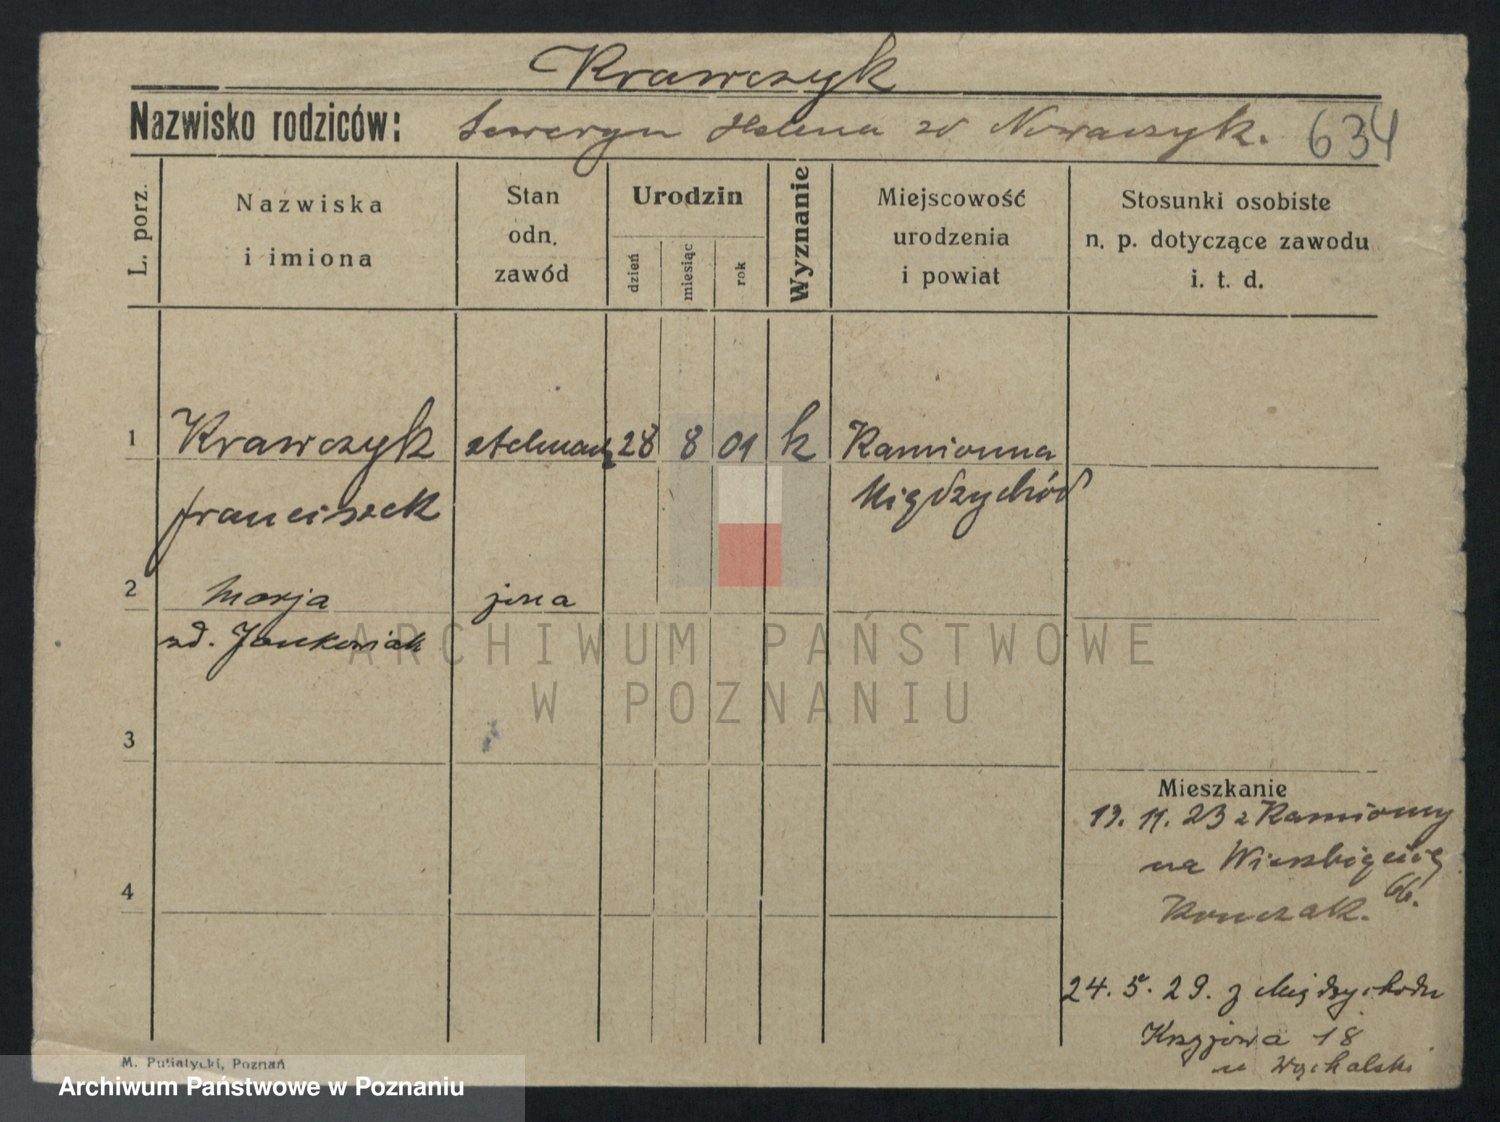 Krawczyk
Nazwisko rodziców: Seweryn Helena zd Nowaczyk. 634
L. porz.
Nazwiska
i imiona
Stan
odn.
zawód
Urodzin
dzień
miesiąc
rok
Wyznanie
Miejscowość
urodzenia
i powiat
Stosunki osobiste
n. p. dotyczące zawodu
i. t. d.
1 Krawczyk stelmach 28 8 01 k Kamionna
Franciszek Międzychód
2 Marja żona
zd. Jankowiak
ARCHIWUM PAŃSTWOWE
W POZNANIU
3
Mieszkanie
19. 11. 23 z Kamionny
na Wierzbięcice
66.
4
Konczak.
24. 5. 29. z Międzychodu
Krzyżowa 18
u Wąchalski
M. Putiatycki, Poznań
Archiwum Państwowe w Poznaniu